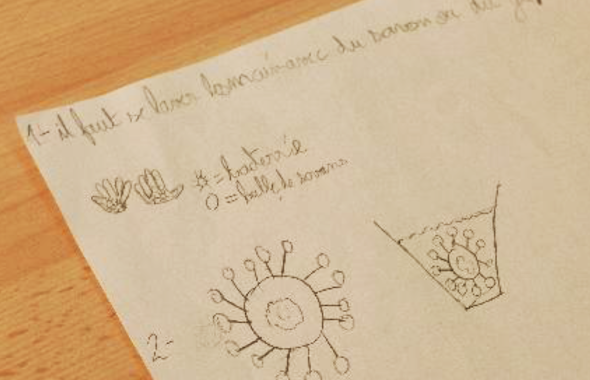 1- il faut se laver les mains avec du savon ou du
= bactérie
O = bulle de savons
2-